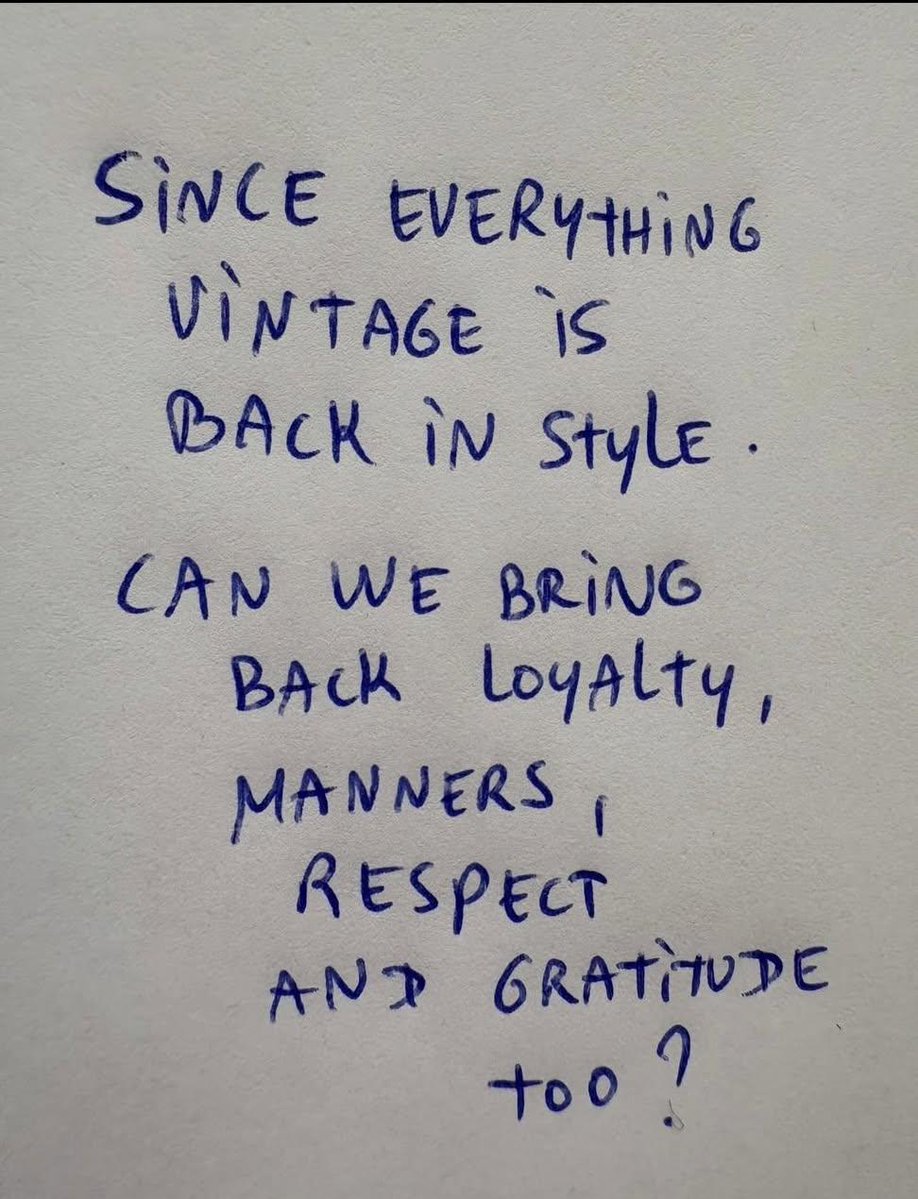 SiNCE EVERYTHiNG
ViNTAGE iS
BACK iN StylE.
CAN WE BRiNG
BACK LOYALty,
MANNERS,
RESPECT
AND GRATiTUDE
too?